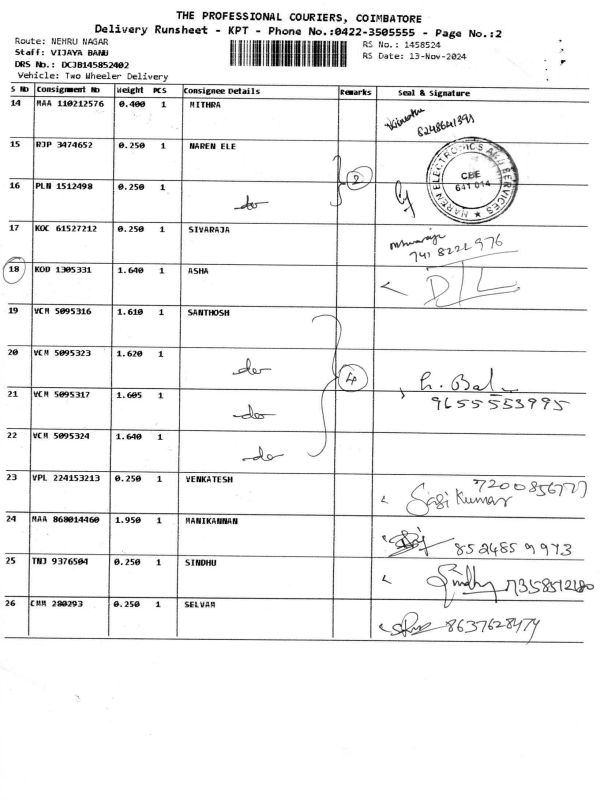 THE PROFESSIONAL COURIERS, COIMBATORE
Delivery Runsheet - KPT - Phone No.:0422-3505555 - Page No.:2
Route: NEHRU NAGAR
RS No.: 1458524
Staff: VIJAYA BANU
RS Date: 13-Nov-2024
DRS No.: DCJB145852402
Vehicle: Two Wheeler Delivery
S No Consignment No Weight PCS Consignee Details Remarks Seal & Signature
14 MAA 110212576 0.400 1 MITHRA
8248641391
15 RJP 3474652 0.250 1 NAREN ELE
2
NAREN ELECTRONICS AND SERVICES
CBE
641 014
16 PLN 1512498 0.250 1 do
17 KOC 61527212 0.250 1 SIVARAJA
741 8222 976
18 KOD 1305331 1.640 1 ASHA
19 VCM 5095316 1.610 1 SANTHOSH
20 VCM 5095323 1.620 1 do
4
21 VCM 5095317 1.605 1 do
9655553995
22 VCM 5095324 1.640 1 do
23 VPL 224153213 0.250 1 VENKATESH
7200856777
Sasi Kumar
24 MAA 868014460 1.950 1 MANIKANNAN
852485 9973
25 TNJ 9376504 0.250 1 SINDHU
Sindhu 7358512180
26 CMM 280293 0.250 1 SELVAM
8637628474